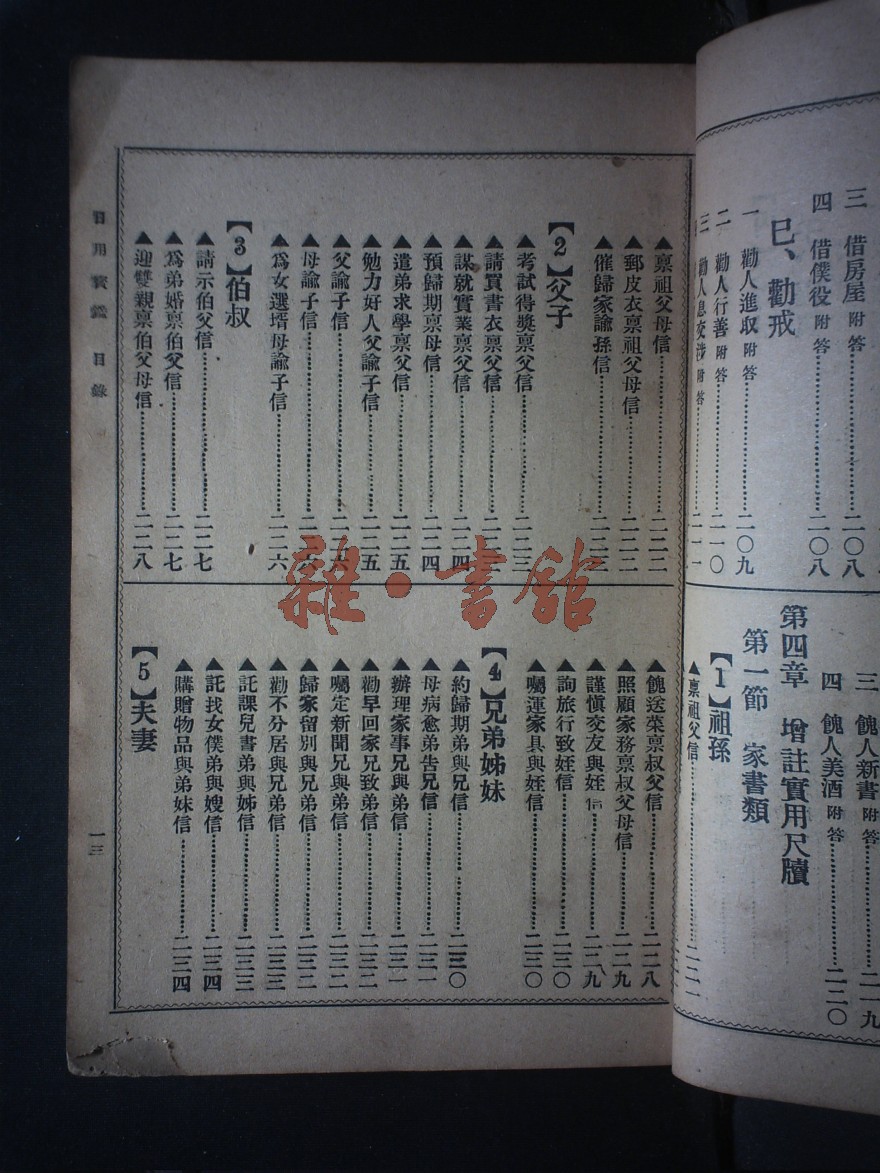 三 借房屋 附答……二〇八
四 借僕役 附答……二〇八
巳、勸戒
一 勸人進取 附答……二〇九
二 勸人行善 附答……二一〇
三 勸人息交涉 附答……二一一
三 餽人新書 附答……二一九
四 餽人美酒 附答……二二〇
第四章 增註實用尺牘
第一節 家書類
【1】祖孫
▲稟祖父信……二二一
▲稟祖父母信……二二二
▲郵皮衣稟祖父母信……二二二
▲催歸家諭孫信……二二三
【2】父子
▲考試得獎稟父信……二二三
▲請買書衣稟父信……二二三
▲謀就實業稟父信……二二四
▲預歸期稟母信……二二四
▲遣弟求學稟父信……二二五
▲勉力好人父諭子信……二二五
▲父諭子信……二二六
▲母諭子信……二二六
▲為女選壻母諭子信……二二六
【3】伯叔
▲請示伯父信……二二七
▲為弟婚稟伯父信……二二七
▲迎雙親稟伯父母信……二二八
▲餽送菜稟叔父信……二二八
▲照顧家務稟叔父母信……二二九
▲謹慎交友與姪信……二二九
▲詢旅行致姪信……二三〇
▲囑運家具與姪信……二三〇
【4】兄弟姊妹
▲約歸期弟與兄信……二三〇
▲母病愈弟告兄信……二三一
▲辦理家事兄與弟信……二三一
▲勸早回家兄致弟信……二三二
▲囑定新聞兄與弟信……二三二
▲歸家留別與兄弟信……二三二
▲勸不分居與兄弟信……二三三
▲託課兒書弟與姊信……二三三
▲託找女僕弟與嫂信……二三四
▲購贈物品與弟妹信……二三四
【5】夫妻
日用寶鑑 目錄
一三
雜·書館